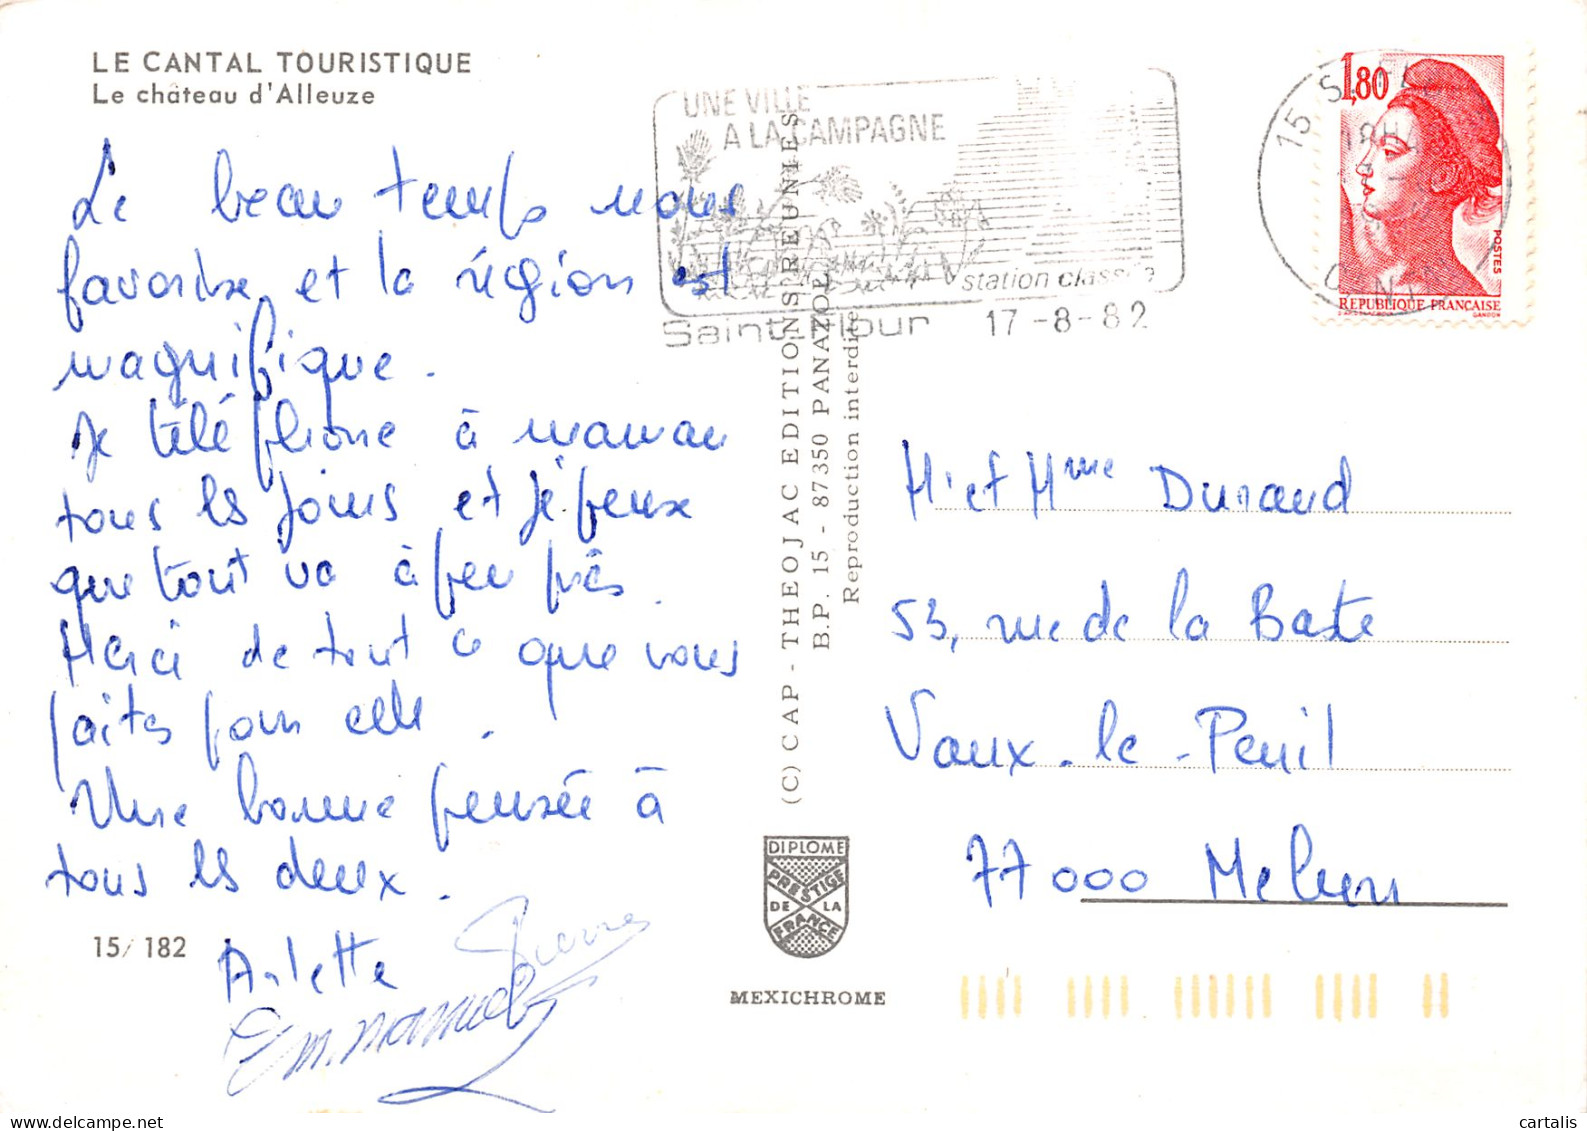 LE CANTAL TOURISTIQUE
Le château d'Alleuze
Le beau temps nous
favorise, et la région est
magnifique.
Je téléphone à maman
tous les jours et je peux
que tout va à peu près.
Merci de tout ce que vous
faites pour elle.
Une bonne pensée à
tous les deux.
Arlette
Pierre
Emmanuel
15/ 182
UNE VILLE
A LA CAMPAGNE
station classée
Saint-Flour 17-8-82
(C) CAP - THEOJAC EDITIONS REUNIES
B.P. 15 - 87350 PANAZOL
Reproduction interdite
DIPLOME
PRESTIGE
DE LA
FRANCE
MEXICHROME
15
1,80
POSTES
REPUBLIQUE FRANCAISE
GANDON
Mr et Mme Durand
53, rue de la Baste
Vaux-le-Penil
77000 Melun
cartalis